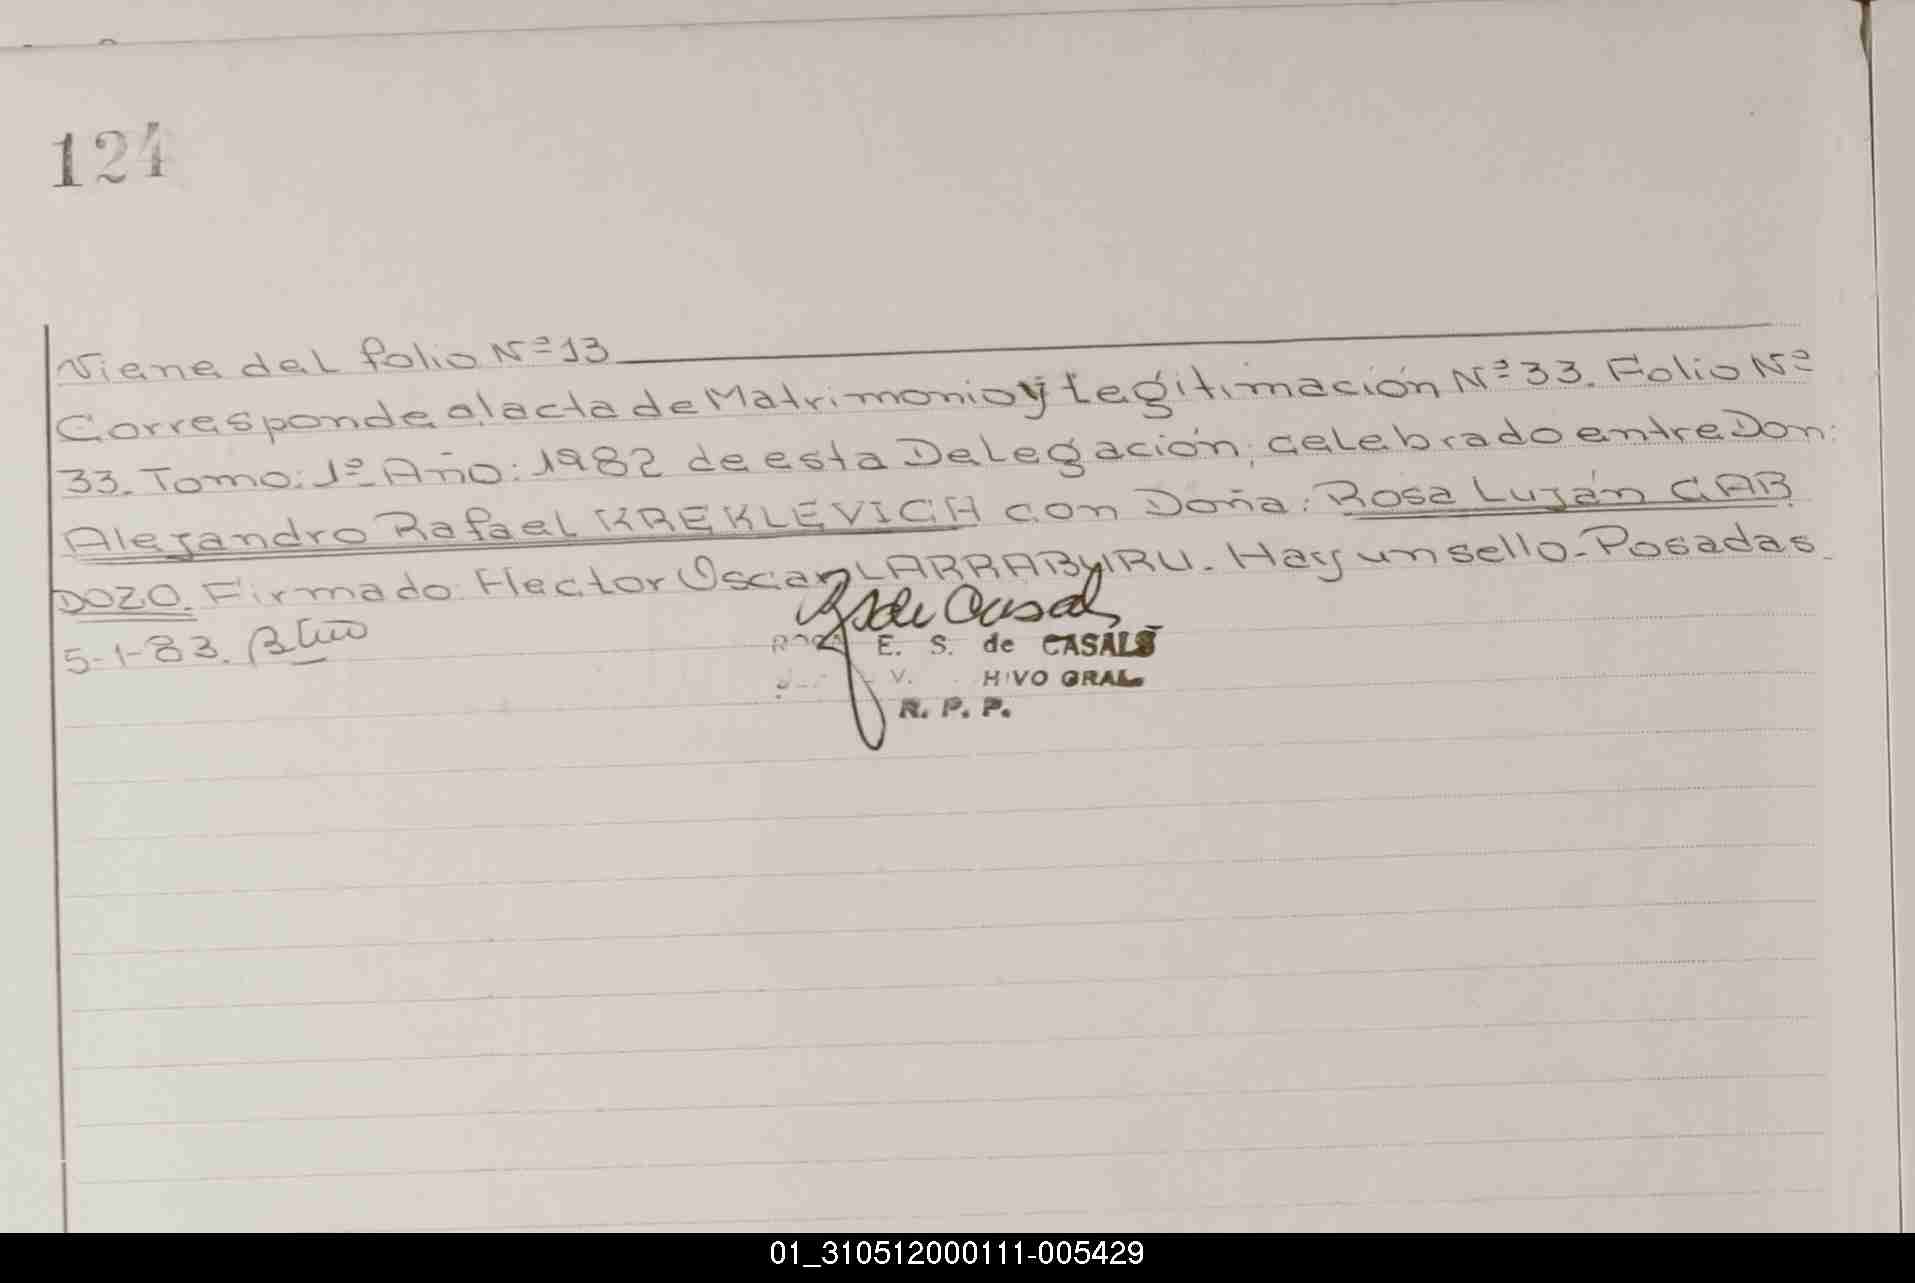 124
Viene del folio Nº 13
Corresponde al acta de Matrimonio y Legitimación Nº 33. Folio Nº
33. Tomo: 1º Año: 1982 de esta Delegación, celebrado entre Don:
Alejandro Rafael KREKLEVICH con Doña: Rosa Luján CAR
DOZO. Firmado: Hector Oscar LARRABURU. Hay un sello. Posadas
5-1-83.
E. S. de CASALS
R. P. P.
01_310512000111-005429